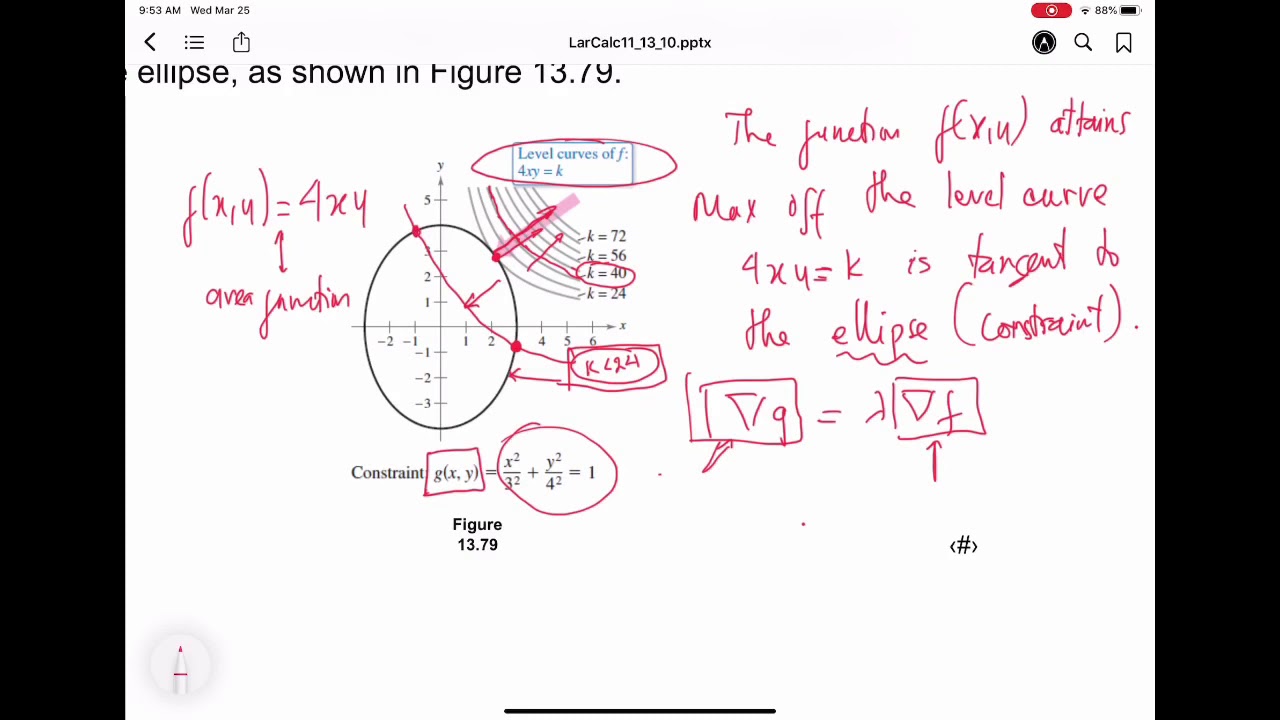 9:53 AM Wed Mar 25
88%
LarCalc11_13_10.pptx
ellipse, as shown in Figure 13.79.
f(x,y) = 4xy
area function
Level curves of f:
4xy = k
y
5
3
2
1
-2 -1 1 2 4 5 6 x
-1
-2
-3
k = 72
k = 56
k = 40
k = 24
K<24
Constraint: g(x, y) = x²/3² + y²/4² = 1
Figure
13.79
The function f(x,y) attains
Max off the level curve
4xy=k is tangent to
the ellipse (constraint).
∇g = λ∇f
‹#›